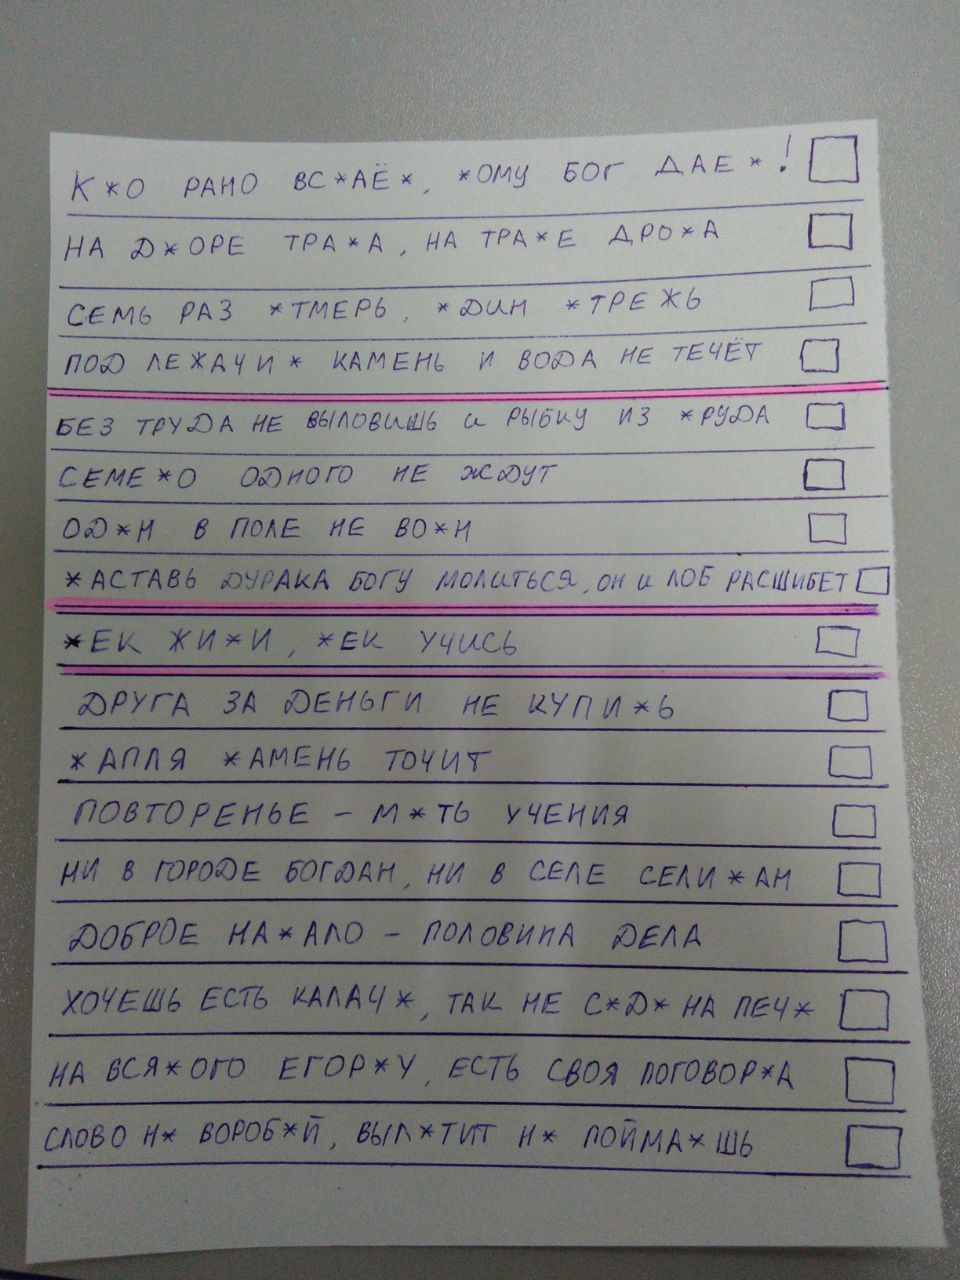 К*О РАНО ВС*АЁ*, *ОМУ БОГ ДАЕ*!
НА Д*ОРЕ ТРА*А, НА ТРА*Е ДРО*А
СЕМЬ РАЗ *ТМЕРЬ, *ДИН *ТРЕЖЬ
ПОД ЛЕЖАЧИ* КАМЕНЬ И ВОДА НЕ ТЕЧЁТ
БЕЗ ТРУДА НЕ ВЫЛОВИШЬ И РЫБКУ ИЗ *РУДА
СЕМЕ*О ОДНОГО НЕ ЖДУТ
ОД*Н В ПОЛЕ НЕ ВО*Н
*АСТАВЬ ДУРАКА БОГУ МОЛИТЬСЯ, ОН И ЛОБ РАСШИБЕТ
*ЕК ЖИ*И, *ЕК УЧИСЬ
ДРУГА ЗА ДЕНЬГИ НЕ КУПИ*Ь
*АПЛЯ *АМЕНЬ ТОЧИТ
ПОВТОРЕНЬЕ - М*ТЬ УЧЕНИЯ
НИ В ГОРОДЕ БОГДАН, НИ В СЕЛЕ СЕЛИ*АН
ДОБРОЕ НА*АЛО - ПОЛОВИНА ДЕЛА
ХОЧЕШЬ ЕСТЬ КАЛАЧ*, ТАК НЕ С*Д* НА ПЕЧ*
НА ВСЯ*ОГО ЕГОР*У, ЕСТЬ СВОЯ ПОГОВОР*А
СЛОВО Н* ВОРОБ*Й, ВЫЛ*ТИТ Н* ПОЙМА*ШЬ